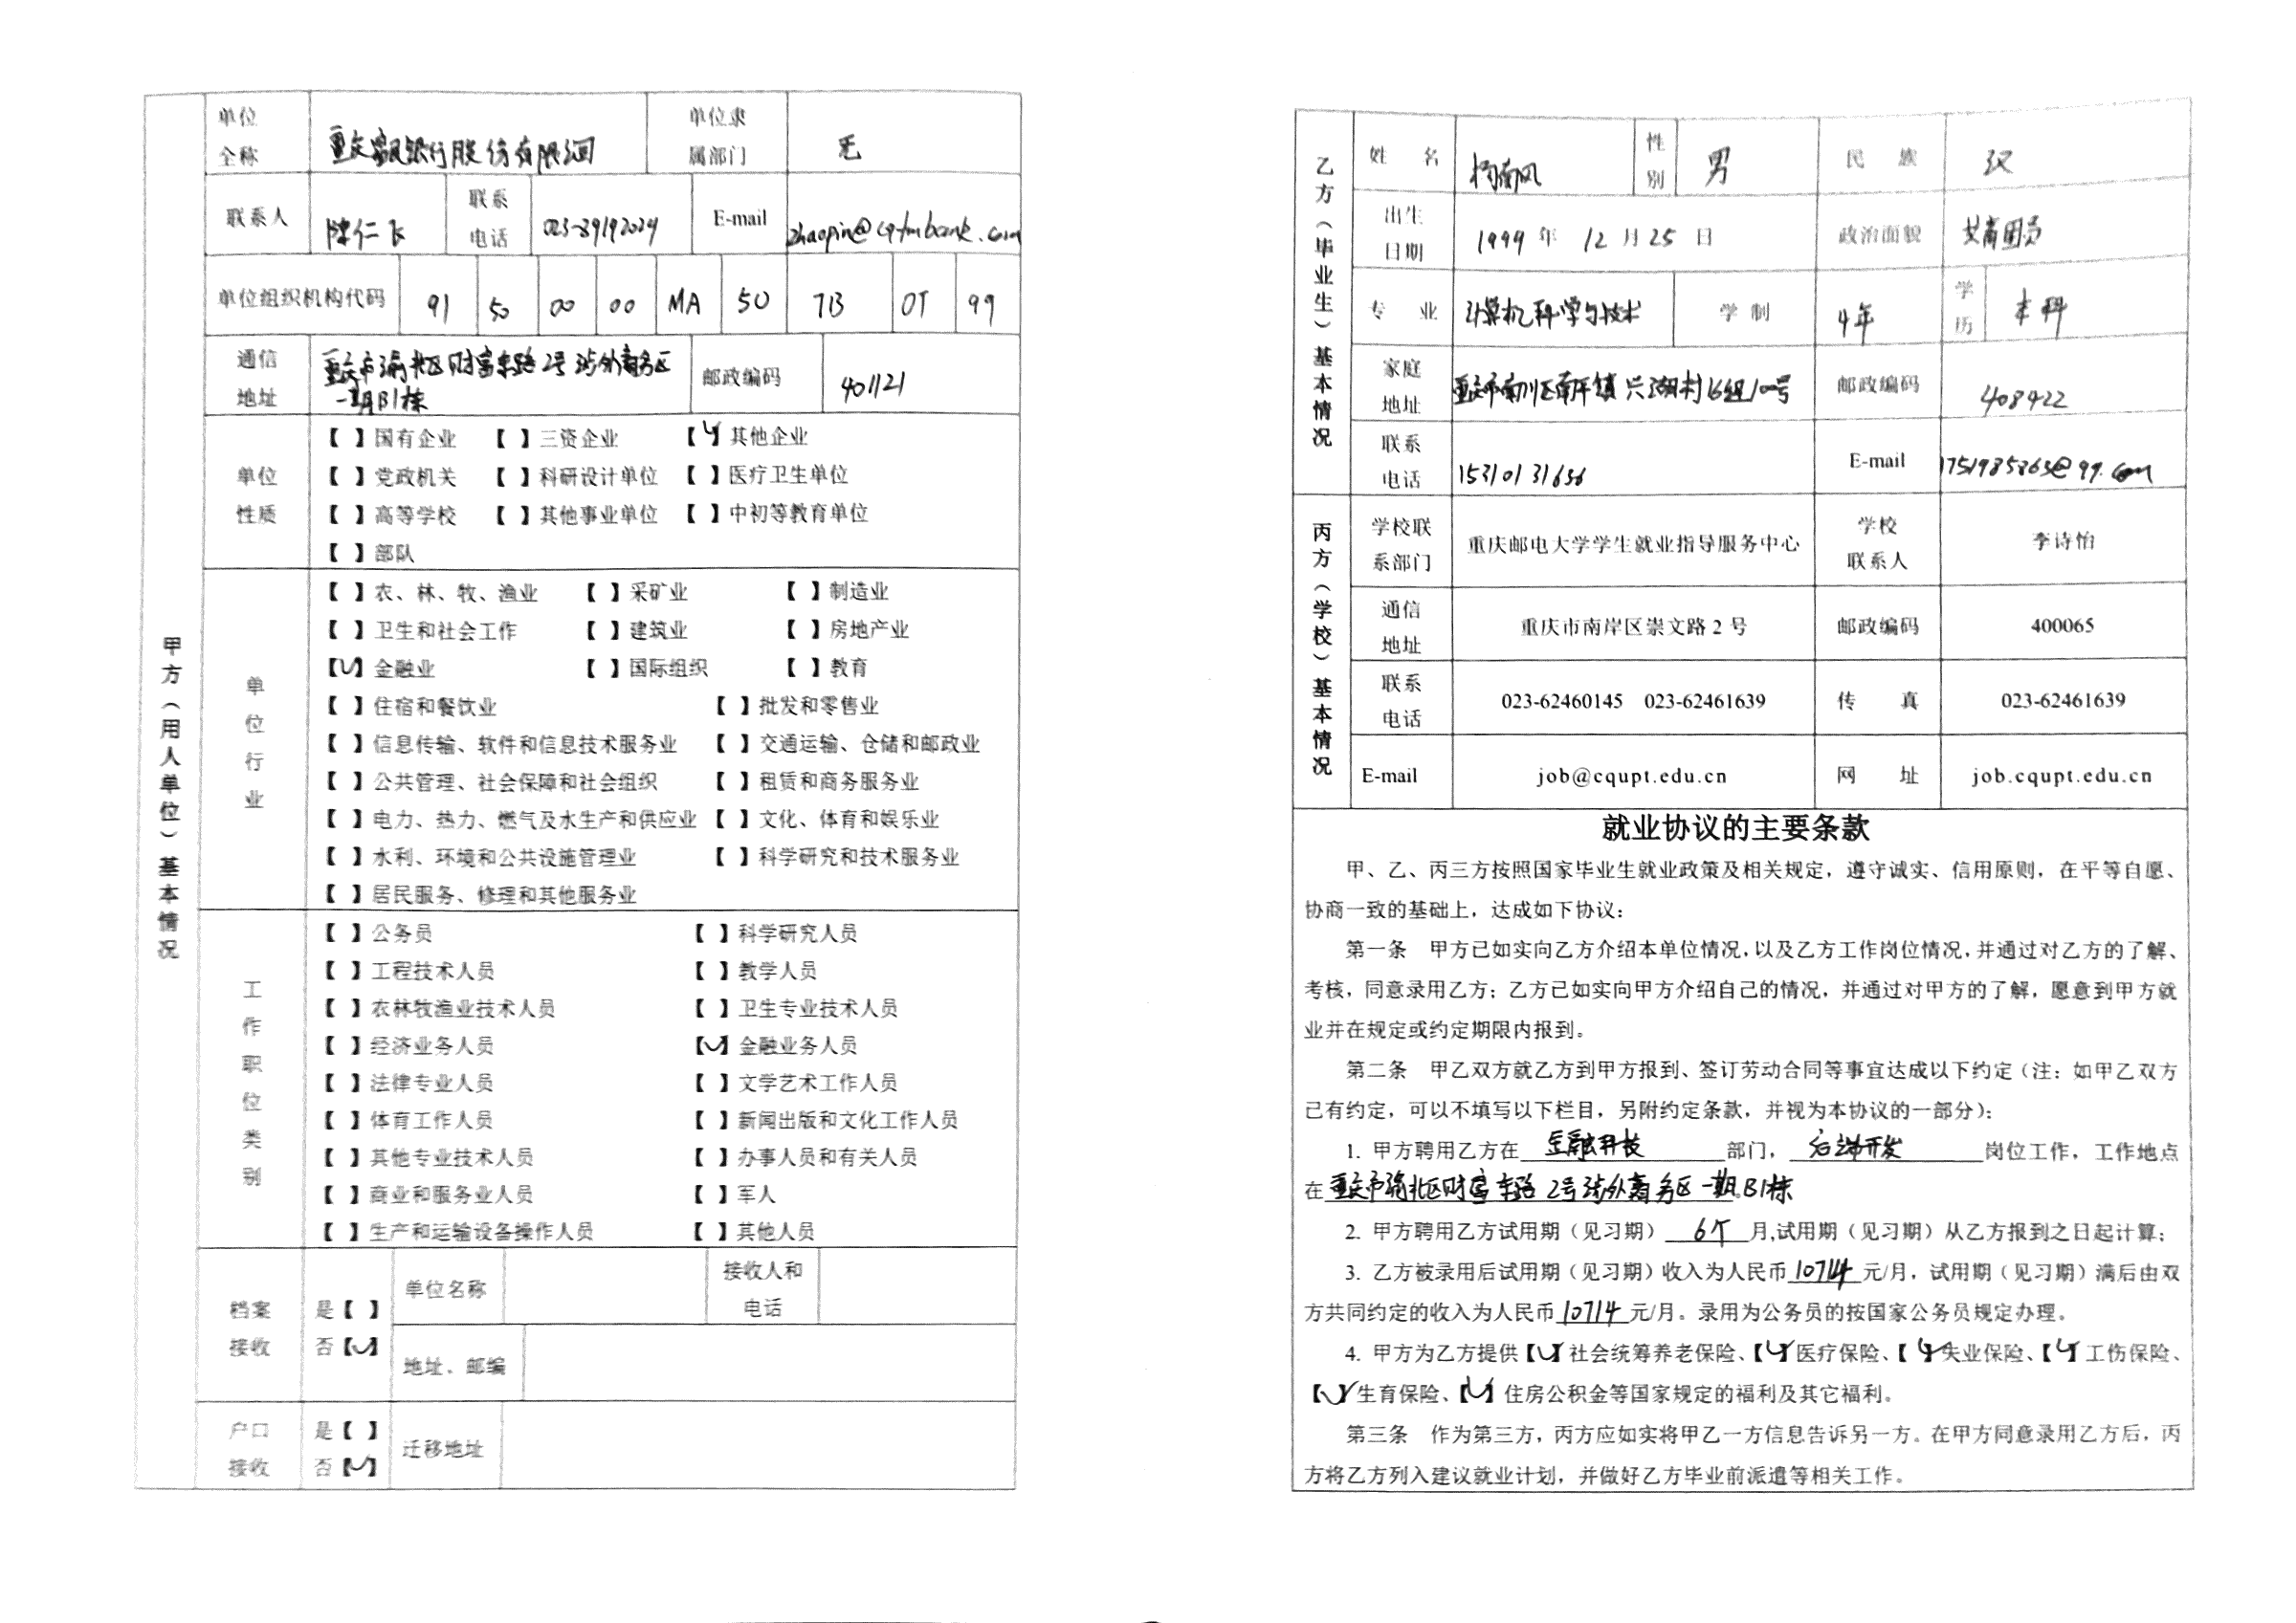 甲方（用人单位）基本情况
单位全称 重庆富民银行股份有限公司 单位隶属部门 无
联系人 陈仁飞 联系电话 023-89192029 E-mail zhaopin@cqfmbank.com
单位组织机构代码 91 50 00 00 MA 5U 7B 0T 99
通信地址 重庆市渝北区财富东路2号涉外商务区一期B1栋 邮政编码 401121
单位性质
【 】国有企业 【 】三资企业 【✓】其他企业
【 】党政机关 【 】科研设计单位 【 】医疗卫生单位
【 】高等学校 【 】其他事业单位 【 】中初等教育单位
【 】部队
单位行业
【 】农、林、牧、渔业 【 】采矿业 【 】制造业
【 】卫生和社会工作 【 】建筑业 【 】房地产业
【✓】金融业 【 】国际组织 【 】教育
【 】住宿和餐饮业 【 】批发和零售业
【 】信息传输、软件和信息技术服务业 【 】交通运输、仓储和邮政业
【 】公共管理、社会保障和社会组织 【 】租赁和商务服务业
【 】电力、热力、燃气及水生产和供应业 【 】文化、体育和娱乐业
【 】水利、环境和公共设施管理业 【 】科学研究和技术服务业
【 】居民服务、修理和其他服务业
工作职位类别
【 】公务员 【 】科学研究人员
【 】工程技术人员 【 】教学人员
【 】农林牧渔业技术人员 【 】卫生专业技术人员
【 】经济业务人员 【✓】金融业务人员
【 】法律专业人员 【 】文学艺术工作人员
【 】体育工作人员 【 】新闻出版和文化工作人员
【 】其他专业技术人员 【 】办事人员和有关人员
【 】商业和服务业人员 【 】军人
【 】生产和运输设备操作人员 【 】其他人员
档案接收 是【 】 否【✓】 单位名称 接收人和电话
地址、邮编
户口接收 是【 】 否【✓】 迁移地址
乙方（毕业生）基本情况
姓 名 杨南风 性别 男 民 族 汉
出生日期 1999 年 12 月 25 日 政治面貌 共青团员
专 业 计算机科学与技术 学 制 4年 学历 本科
家庭地址 重庆市南川区南平镇兴湖村16组100号 邮政编码 408422
联系电话 15310131636 E-mail 1751985863@qq.com
丙方（学校）基本情况
学校联系部门 重庆邮电大学学生就业指导服务中心 学校联系人 李诗怡
通信地址 重庆市南岸区崇文路 2 号 邮政编码 400065
联系电话 023-62460145 023-62461639 传 真 023-62461639
E-mail job@cqupt.edu.cn 网 址 job.cqupt.edu.cn
就业协议的主要条款
甲、乙、丙三方按照国家毕业生就业政策及相关规定，遵守诚实、信用原则，在平等自愿、
协商一致的基础上，达成如下协议：
第一条 甲方已如实向乙方介绍本单位情况，以及乙方工作岗位情况，并通过对乙方的了解、
考核，同意录用乙方；乙方已如实向甲方介绍自己的情况，并通过对甲方的了解，愿意到甲方就
业并在规定或约定期限内报到。
第二条 甲乙双方就乙方到甲方报到、签订劳动合同等事宜达成以下约定（注：如甲乙双方
已有约定，可以不填写以下栏目，另附约定条款，并视为本协议的一部分）：
1. 甲方聘用乙方在 金融科技 部门， 后端开发 岗位工作，工作地点
在重庆市渝北区财富东路2号涉外商务区一期B1栋
2. 甲方聘用乙方试用期（见习期） 6个 月,试用期（见习期）从乙方报到之日起计算；
3. 乙方被录用后试用期（见习期）收入为人民币 10714 元/月，试用期（见习期）满后由双
方共同约定的收入为人民币 10714 元/月。录用为公务员的按国家公务员规定办理。
4. 甲方为乙方提供【✓】社会统筹养老保险、【✓】医疗保险、【✓】失业保险、【✓】工伤保险、
【✓】生育保险、【✓】住房公积金等国家规定的福利及其它福利。
第三条 作为第三方，丙方应如实将甲乙一方信息告诉另一方。在甲方同意录用乙方后，丙
方将乙方列入建议就业计划，并做好乙方毕业前派遣等相关工作。